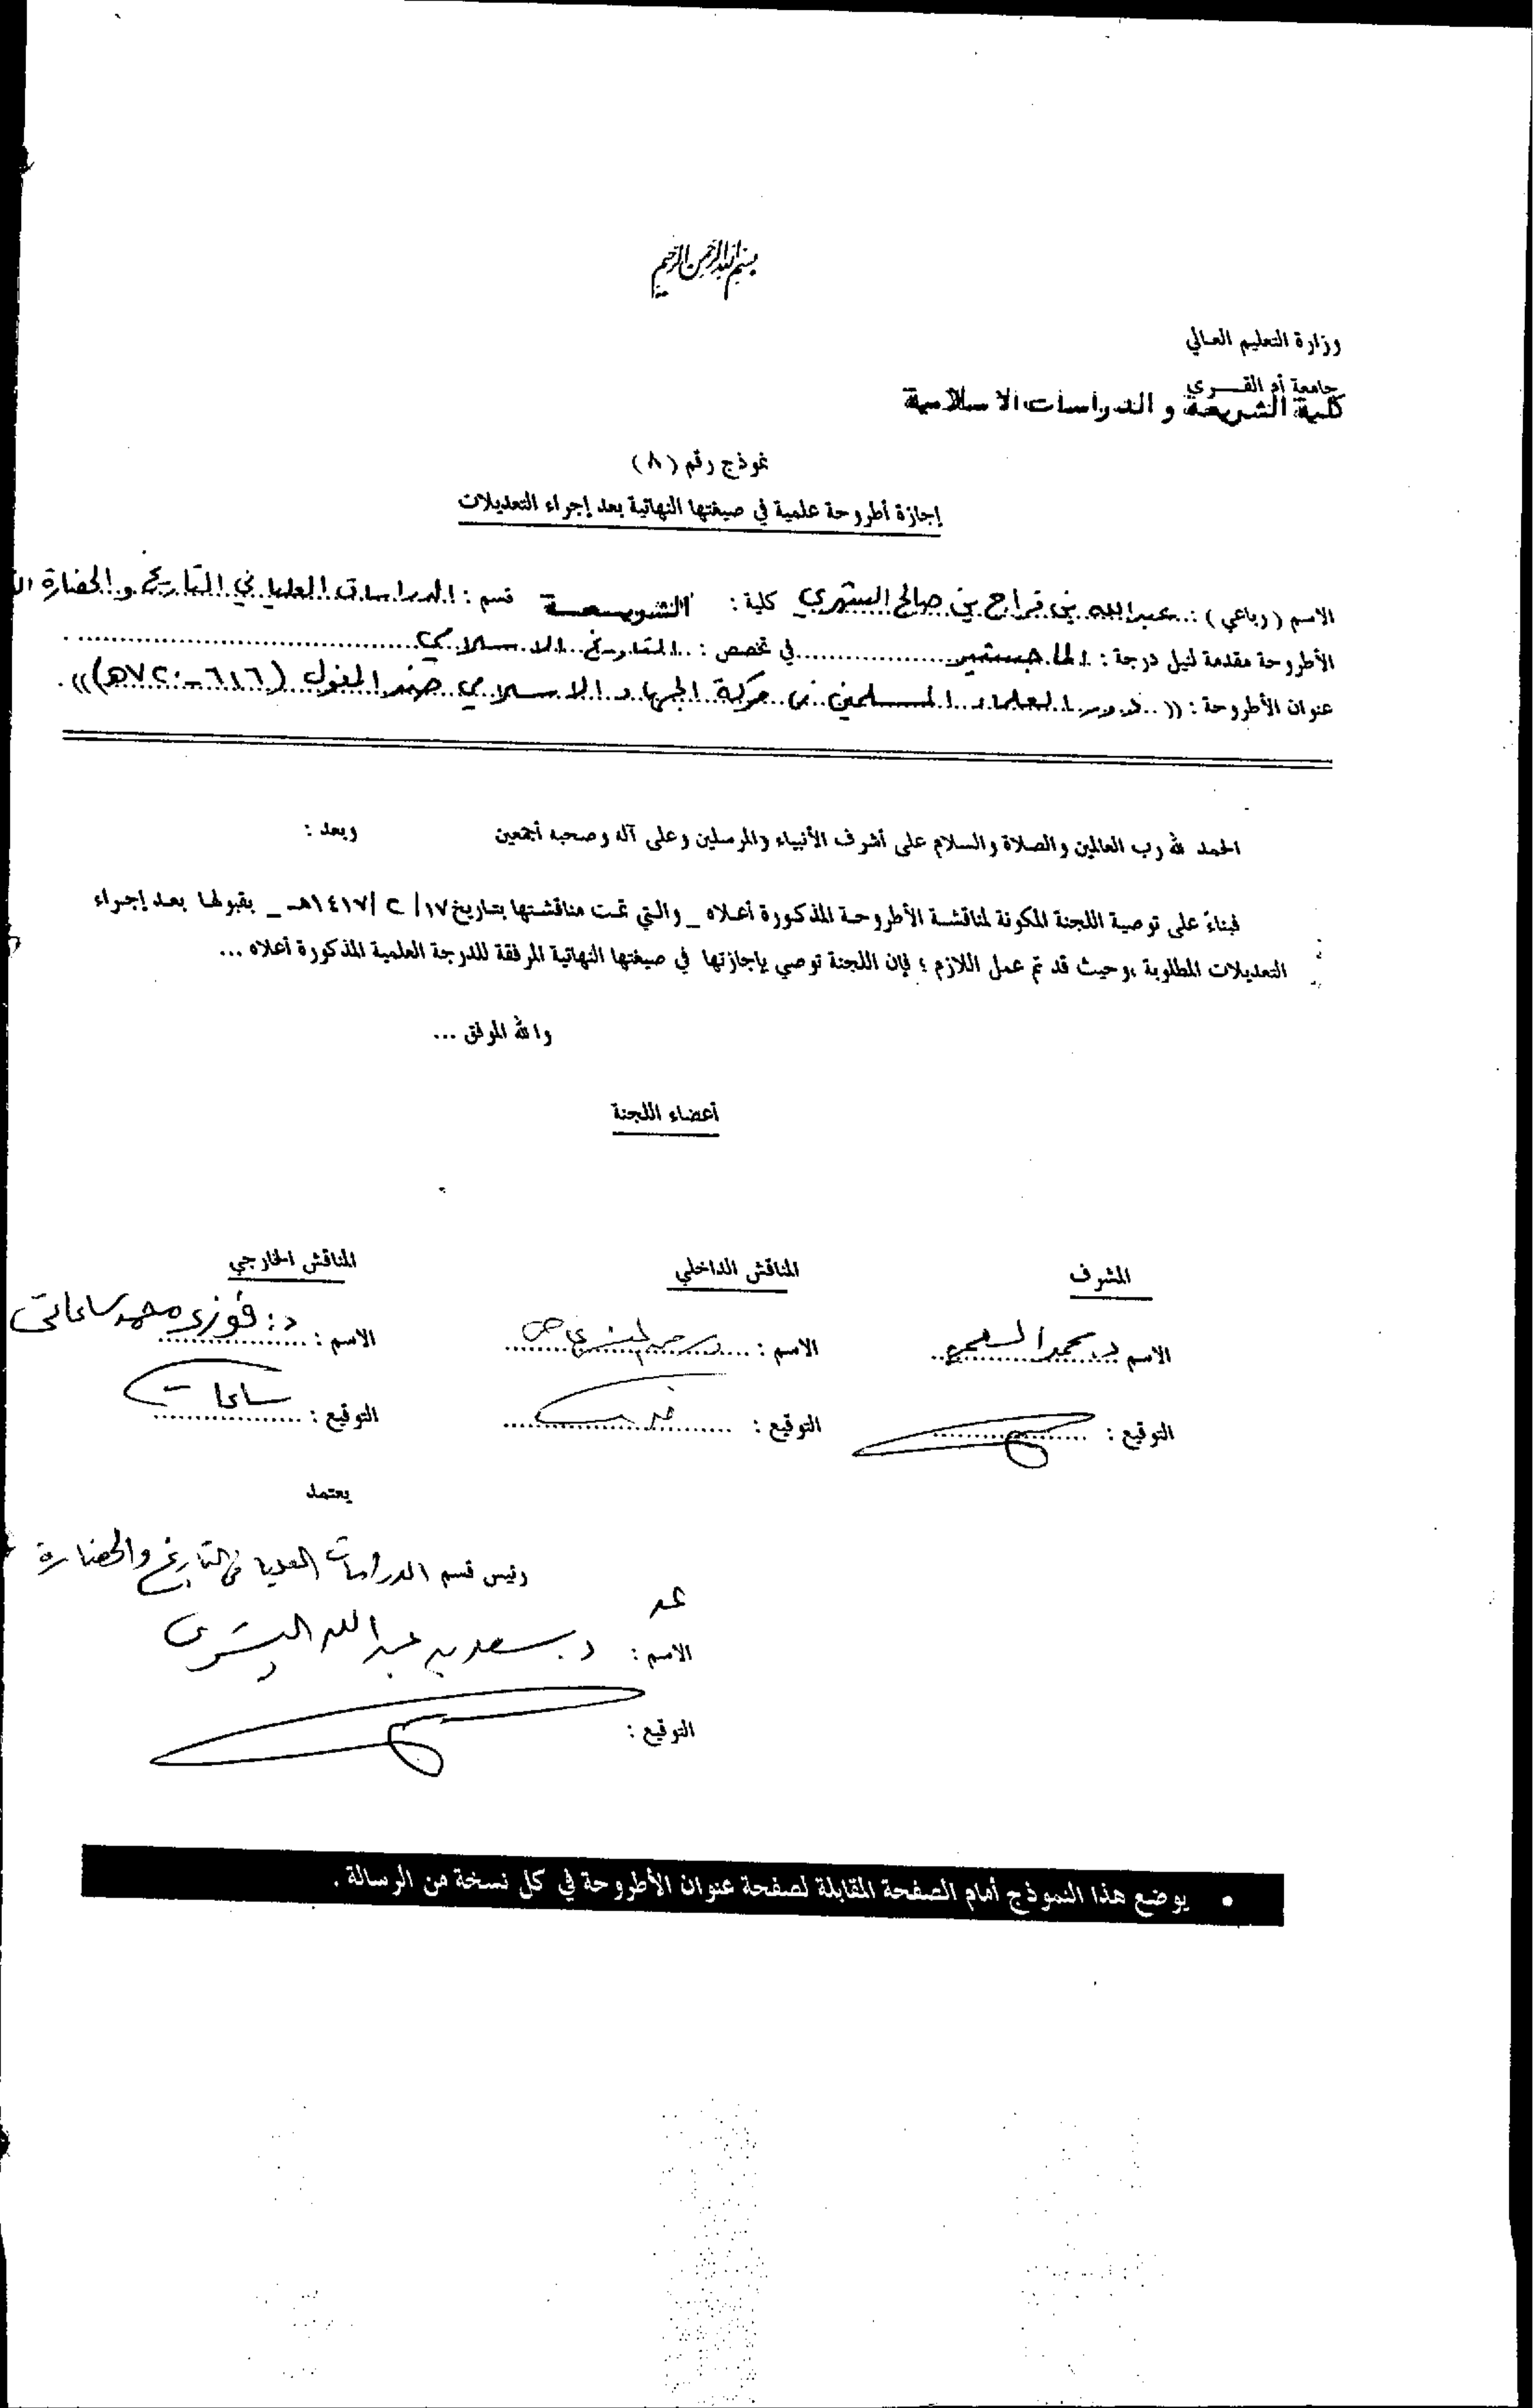 بسم الله الرحمن الرحيم
وزارة التعليم العالي
جامعة أم القــرى
كلية الشريعة والدراسات الاسلامية
نموذج رقم (٨)
إجازة أطروحة علمية في صيغتها النهائية بعد إجراء التعديلات
الاسم (رباعي) : عبدالله بن فراج بن صالح الشهري كلية : الشريعــة قسم : الدراسات العليا في التاريخ والحضارة
الأطروحة مقدمة لنيل درجة : الماجستير في تخصص : التاريخ الاسلامي
عنوان الأطروحة : (( دور العلماء المسلمين في حركة الجهاد الاسلامي ضد المغول (٦١٦-٧٢٠هـ) )) .
الحمد لله رب العالمين والصلاة والسلام على أشرف الأنبياء والمرسلين وعلى آله وصحبه أجمعين وبعد :
فبناءً على توصية اللجنة المكونة لمناقشة الأطروحة المذكورة أعلاه _ والتي تمت مناقشتها بتاريخ ١٧/ ٢ /١٤١٧هـ _ بقبولها بعد إجراء
التعديلات المطلوبة ، وحيث قد تم عمل اللازم ؛ فإن اللجنة توصي بإجازتها في صيغتها النهائية المرفقة للدرجة العلمية المذكورة أعلاه ...
والله الموفق ...
أعضاء اللجنة
المشرف المناقش الداخلي المناقش الخارجي
الاسم د. الاسم : الاسم : د: فوزي محمد ساعاتي
التوقيع : التوقيع : التوقيع : ساعاتي
يعتمد
رئيس قسم الدراسات العليا في التاريخ والحضارة
الاسم : د. سعد بن عبدالله البشري
التوقيع :
• يوضع هذا النموذج أمام الصفحة المقابلة لصفحة عنوان الأطروحة في كل نسخة من الرسالة .